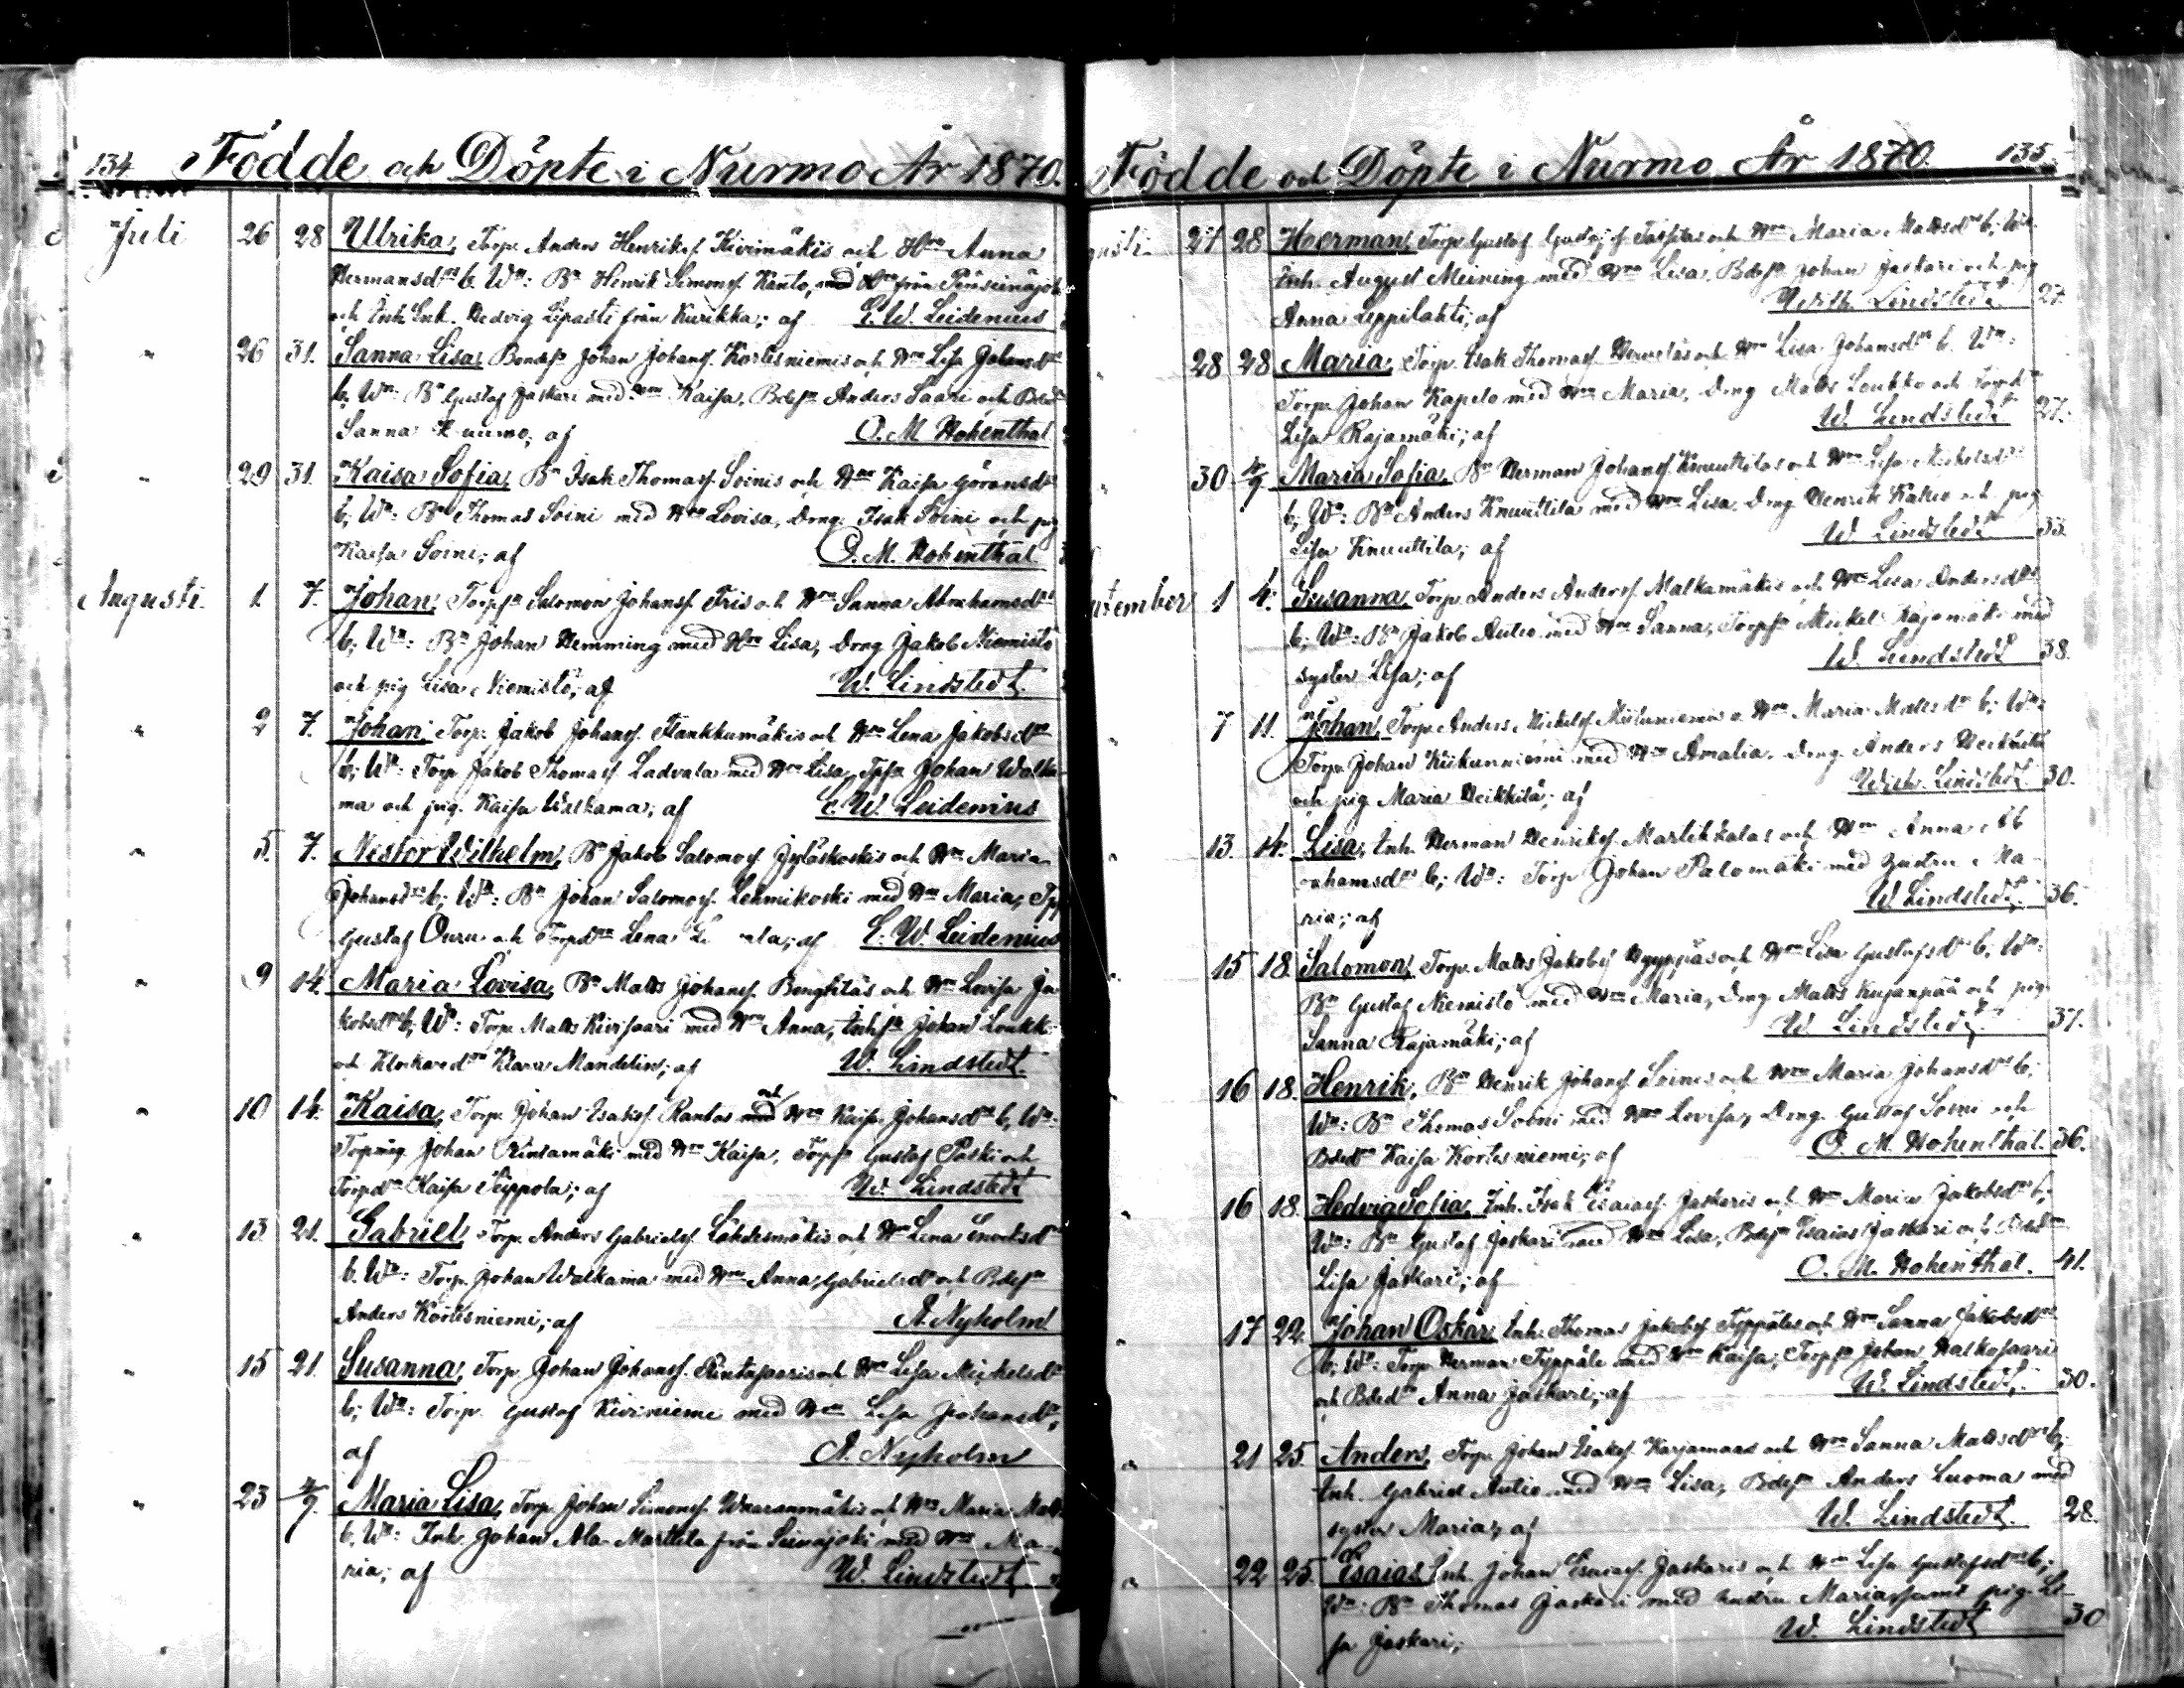 134 Födde och Döpte i Nurmo År 1870.
Juli 26 28 Ulrika, Torp. Anders Henriksf. Kivimäkis och Hru Anna
Hermansdrs b. Wn: Bn Henrik Simonsf. Kento, med Hru från
och Inh. Enk. Hedvig Lipasti från Kurikka; af E. W. Leidenius
" 26 31. Sanna Lisa, Bondes. Johan Johansf. Kortesniemis och Hru Lisa Johansdrs
b. Wn: Bn Gustaf Jaskari med Hru Kaisa, Bdesn Anders Saari och
Sanna af O. M. Hohenthal
" 29 31. Kaisa Sofia, Bn Isak Thomasf. Soinis och Hru Kaisa Göransdrs
b; Wn: Bn Thomas Soini med Hru Lovisa, Dräng. Isak Soini och pig
Kaisa Soini; af O. M. Hohenthal
Augusti. 1. 7. Johan, Torpsn Salomon Johansf. Fris och Hru Sanna Abrahamsdrs
b; Wn: Bn Johan Hemming med Hru Lisa, Dreng Jakob Niemistö
och pig Lisa Niemistö; af W. Lindstedt.
" 2 7. Johan, Torp. Jakob Johansf. och Hru Lena Jakobsdrs
b; Wn: Torp. Jakob Thomasf. Ladvala med Hru Lisa, Tpsn Johan Walka-
ma och pig. Kaisa Walkama; af E. W. Leidenius
" 5. 7. Nestor Wilhelm, Bn Jakob Salomosf. Jyläskoskis och Hru Maria
Johansdrs b; Wn: Bn Johan Salomosf. Lehmikoski med Hru Maria,
Gustaf Ouru och Torpdrn Lena af E. W. Leidenius
" 9 14. Maria Lovisa, Bn Matts Johansf. och Hru Lovisa Ja
kobsdrs b; Wn: Torp. Matts Kivisaari med Hru Anna, Inhsn Johan Loukk
och Klockaredrn Klara Mandelin; af W. Lindstedt.
" 10 14. Kaisa, Torp. Johan Isaksf. Rantas med och Hru Kaisa Johansdrs b, Wn:
Johan Rintamäki med Hru Kaisa, Torpsn Gustaf och
Torpdrn Kaisa Seppola; af W. Lindstedt
" 13 21. Gabriel, Torp. Anders Gabrielsf. Lähdesmäkis och Hru Lena
b. Wn: Torp. Johan Walkama med Hru Anna Gabrielsdr och Bdesn
Anders Kortesniemi; af A. Nyholm
" 15 21. Susanna, Torp. Johan Johansf. Rintasaaris och Hru Lisa Michelsdrs
b; Wn: Torp. Gustaf Kiviniemi med Hru Lisa Johansdrn,
af A. Nyholm
" 23 4/9. Maria Lisa, Torp. Johan Simonsf. Waaranmäkis och Hru Maria
b. Wn: Inh. Johan Ala-Marttila från Seinäjoki med Hru Ma-
ria; af W. Lindstedt
Födde och Döpte i Nurmo År 1870. 135.
27 28 Herman, Torp. Gustaf och Hru Maria Mattsdrs b; Wn:
Inh. August Meining med Hru Lisa, Bdesn Johan Jaskari och pig
Anna Leppilahti; af Wilh. Lindstedt. 27.
" 28 28 Maria, Torp. Isak Thomasf. och Hru Lisa Johansdrs b. Wn:
Torp. Johan Kapelo med Hru Maria, Dreng Matts Loukko och Torpdrn
Lisa Rajamäki; af W. Lindstedt 27.
" 30 4/9 Maria Sofia, Bn Herman Johansf. Knuuttilas och Hru Lisa Michelsdrs
b; Wn: Bn Anders Knuuttila med Hru Lisa, Dreng Henrik och pig
Lisa Knuuttila; af W. Lindstedt 33.
September 1 4. Susanna, Torp. Anders Andersf. Malkamäkis och Hru Lisa Andersdrs
b; Wn: Bn Jakob Autio med Hru Sanna, Torpsn Mickel Rajamäki med
syster Lisa; af W. Lindstedt 38.
" 7 11. Johan, Torp. Anders Mickelsf. och Hru Maria Mattsdr b; Wn:
Torp. Johan Kiikunniemi med Hru Amalia, Dreng Anders Heikkilä
och pig Maria Heikkilä; af Wilh. Lindstedt 30.
" 13. 14. Lisa, Inh. Herman Henriksf. Marttikkalas och Hru Anna Ab
rahamsdrs b; Wn: Torp. Johan Palomäki med hustru Ma-
ria; af W. Lindstedt. 36.
" 15 18. Salomon, Torp. Matts Jakobsf. och Hru Lisa Gustafsdrs b; Wn:
Bn Gustaf Niemistö med Hru Maria, Dreng Matts Kujanpää och pig
Sanna Rajamäki; af W. Lindstedt. 37.
" 16 18. Henrik, Bn Henrik Johansf. Soinis och Hru Maria Johansdrs b;
Wn: Bn Thomas Soini med Hru Lovisa, Dreng. Gustaf Soini och
Bdedrn Kaisa Kortesniemi; af O. M. Hohenthal. 36.
" 16 18. Hedvig Sofia, Inh. Isak Esaiasf. Jaskaris och Hru Maria Jakobsdrs b;
Wn: Bn Gustaf Jaskari med Hru Lisa, Bdesn Esaias Jaskari och
Lisa Jaskari; af O. M. Hohenthal. 41.
" 17 22. Johan Oskar, Inh. Thomas Jakobsf. Typpäläs och Hru Sanna Jakobsdrs
b; Wn: Torp. Herman Typpälä med Hru Kaisa, Torpsn Johan Halkosaari
och Bdedrn Anna Jaskari; af W. Lindstedt. 30.
" 21 25. Anders, Torp. Johan Isaksf. Karjamaas och Hru Sanna Mattsdrs b;
Inh. Gabriel Autio med Hru Lisa, Bdesn Anders Luoma med
syster Maria; af W. Lindstedt. 28.
" 22 25. Esaias, Inh. Johan Esaiasf. Jaskaris och Hru Lisa Gustafsdrs b;
Wn: Bn Thomas Jaskari med hustru Maria, samt pig. Li-
sa Jaskari; W. Lindstedt 30